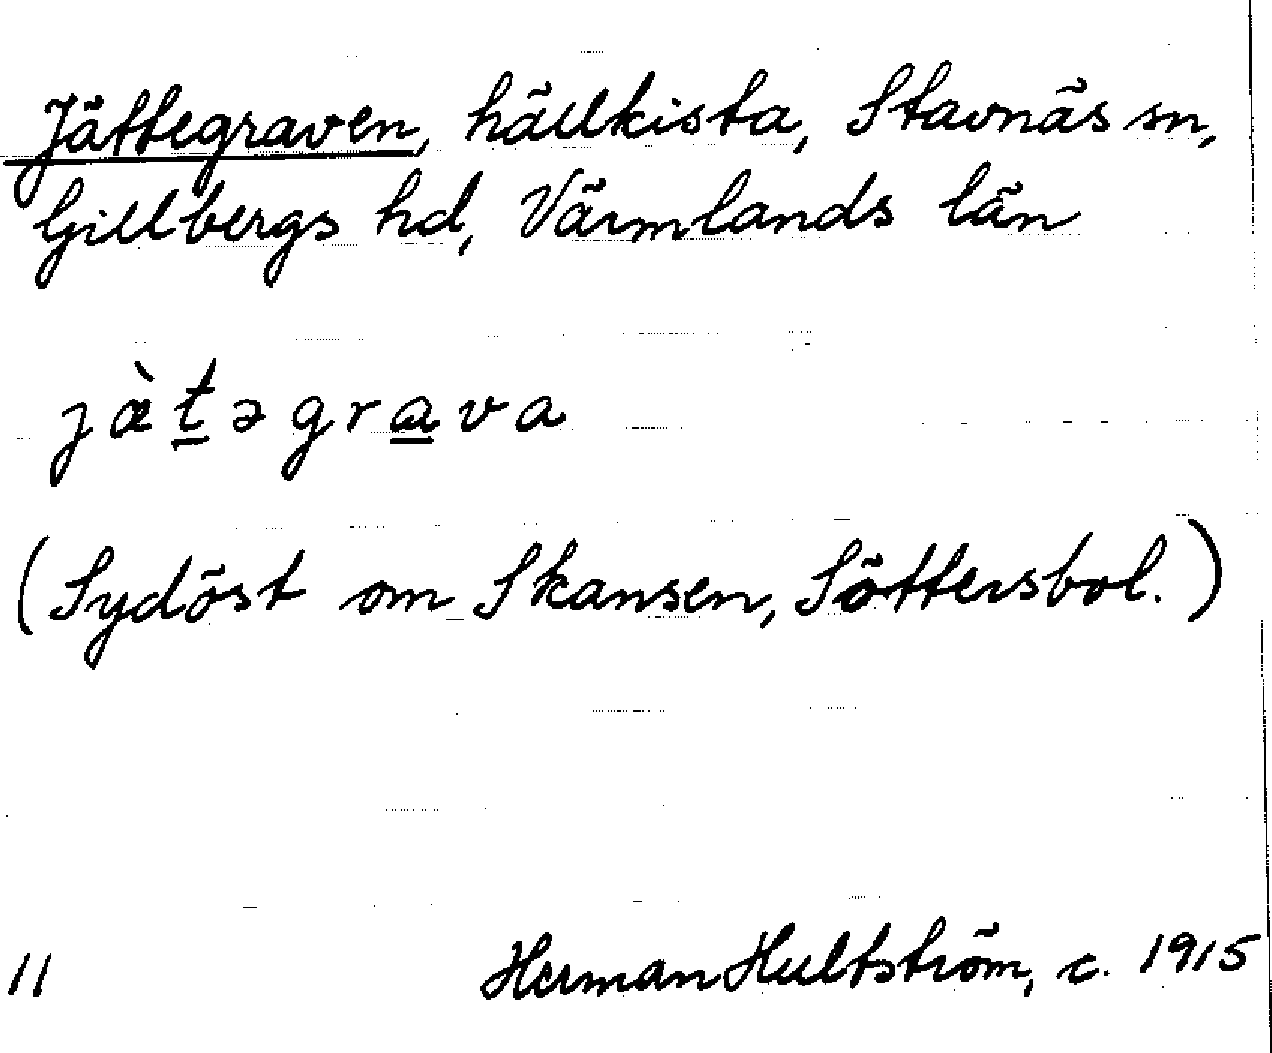 Jättegraven, hällkista, Stavnäs sn,
Gillbergs hd, Värmlands län
jæ̀t̠əgra̠va
(Sydöst om Skansen, Söttersbol.)
11
Herman Hultström, c. 1915